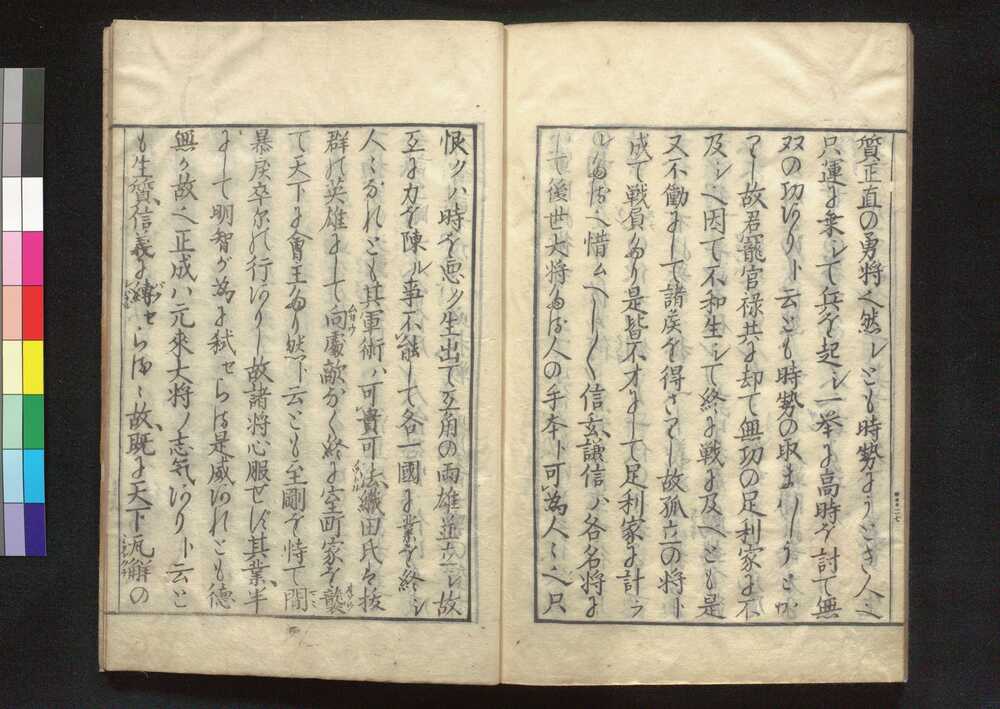 質正直の勇将ヘ然レとも時勢にうとき人ヘ
只運に乗シて兵を起シ一挙に高時を討て無
双の功有リト云とも時勢の取まハしうとか
りし故君寵官禄共に却て無功の足利家に不
及シヘ因て不和生シて終に戦に及ヘとも是
又不働にして諸侯を得さりし故孤立の将ト
成て戦負たり是皆不才にして足利家に計ラ
るヘ惜ムヘし〱信玄謙信ハ各名将に
して後世大将たる人の手本ト可為人〻ヘ只
恨クハ時を悪ク生出て互角の両雄並立シ故
互に力を陳ル事不能して各一國に業を終シ
人〻なれとも其軍術ハ可貴可法織田氏は抜
群の英雄にして向處敵なく終に室町家を襲
て天下に會王たり然ト云とも至剛を恃て間
暴戻卒尓の行有りし故諸将心服せす其業半
にして明智が為に弑せらる是威有れとも徳
無キ故ヘ正成ハ元來大将ノ志気有リト云と
も生質信義に縛せらるゝ故既に天下瓦解の